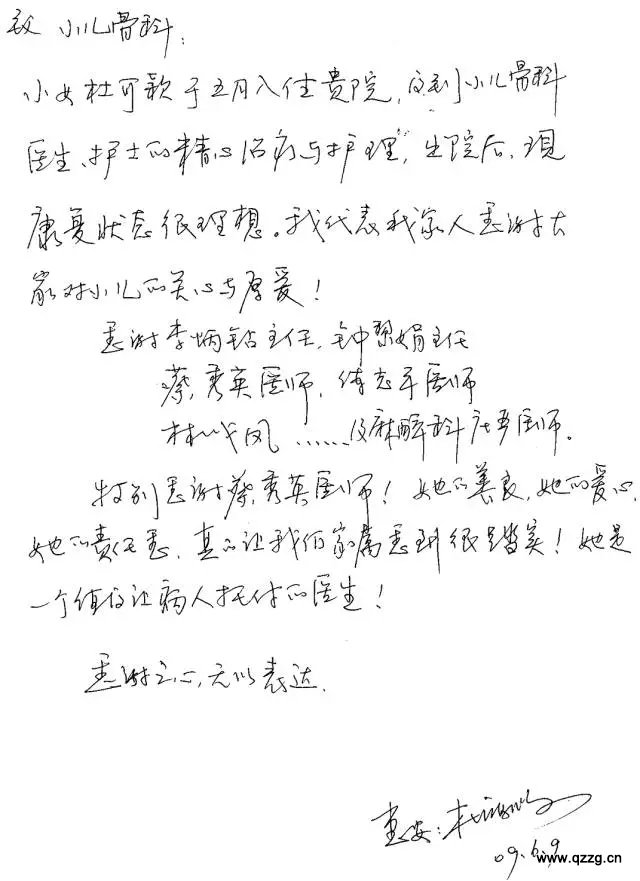 致 小儿骨科:
小女杜可歌于五月入住贵院,得到小儿骨科
医生、护士的精心治疗与护理,出院后,现
康复状态很理想。我代表我家人感谢大
家对小儿的关心与厚爱!
感谢李炳钻主任,钟黎娟主任
蔡秀英医师,傅志平医师
林成凤......及麻醉科 医师。
特别感谢蔡秀英医师!她的善良,她的爱心,
她的责任感,真的让我们家属感到很踏实!她是
一个值得让病人托付的医生!
感谢之心,无以表达.
惠安:
09.6.9
www.qzzg.cn